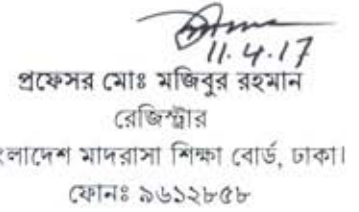 11.4.17
প্রফেসর মোঃ মজিবুর রহমান
রেজিস্ট্রার
ংলাদেশ মাদরাসা শিক্ষা বোর্ড, ঢাকা।
ফোনঃ ৯৬১২৮৫৮